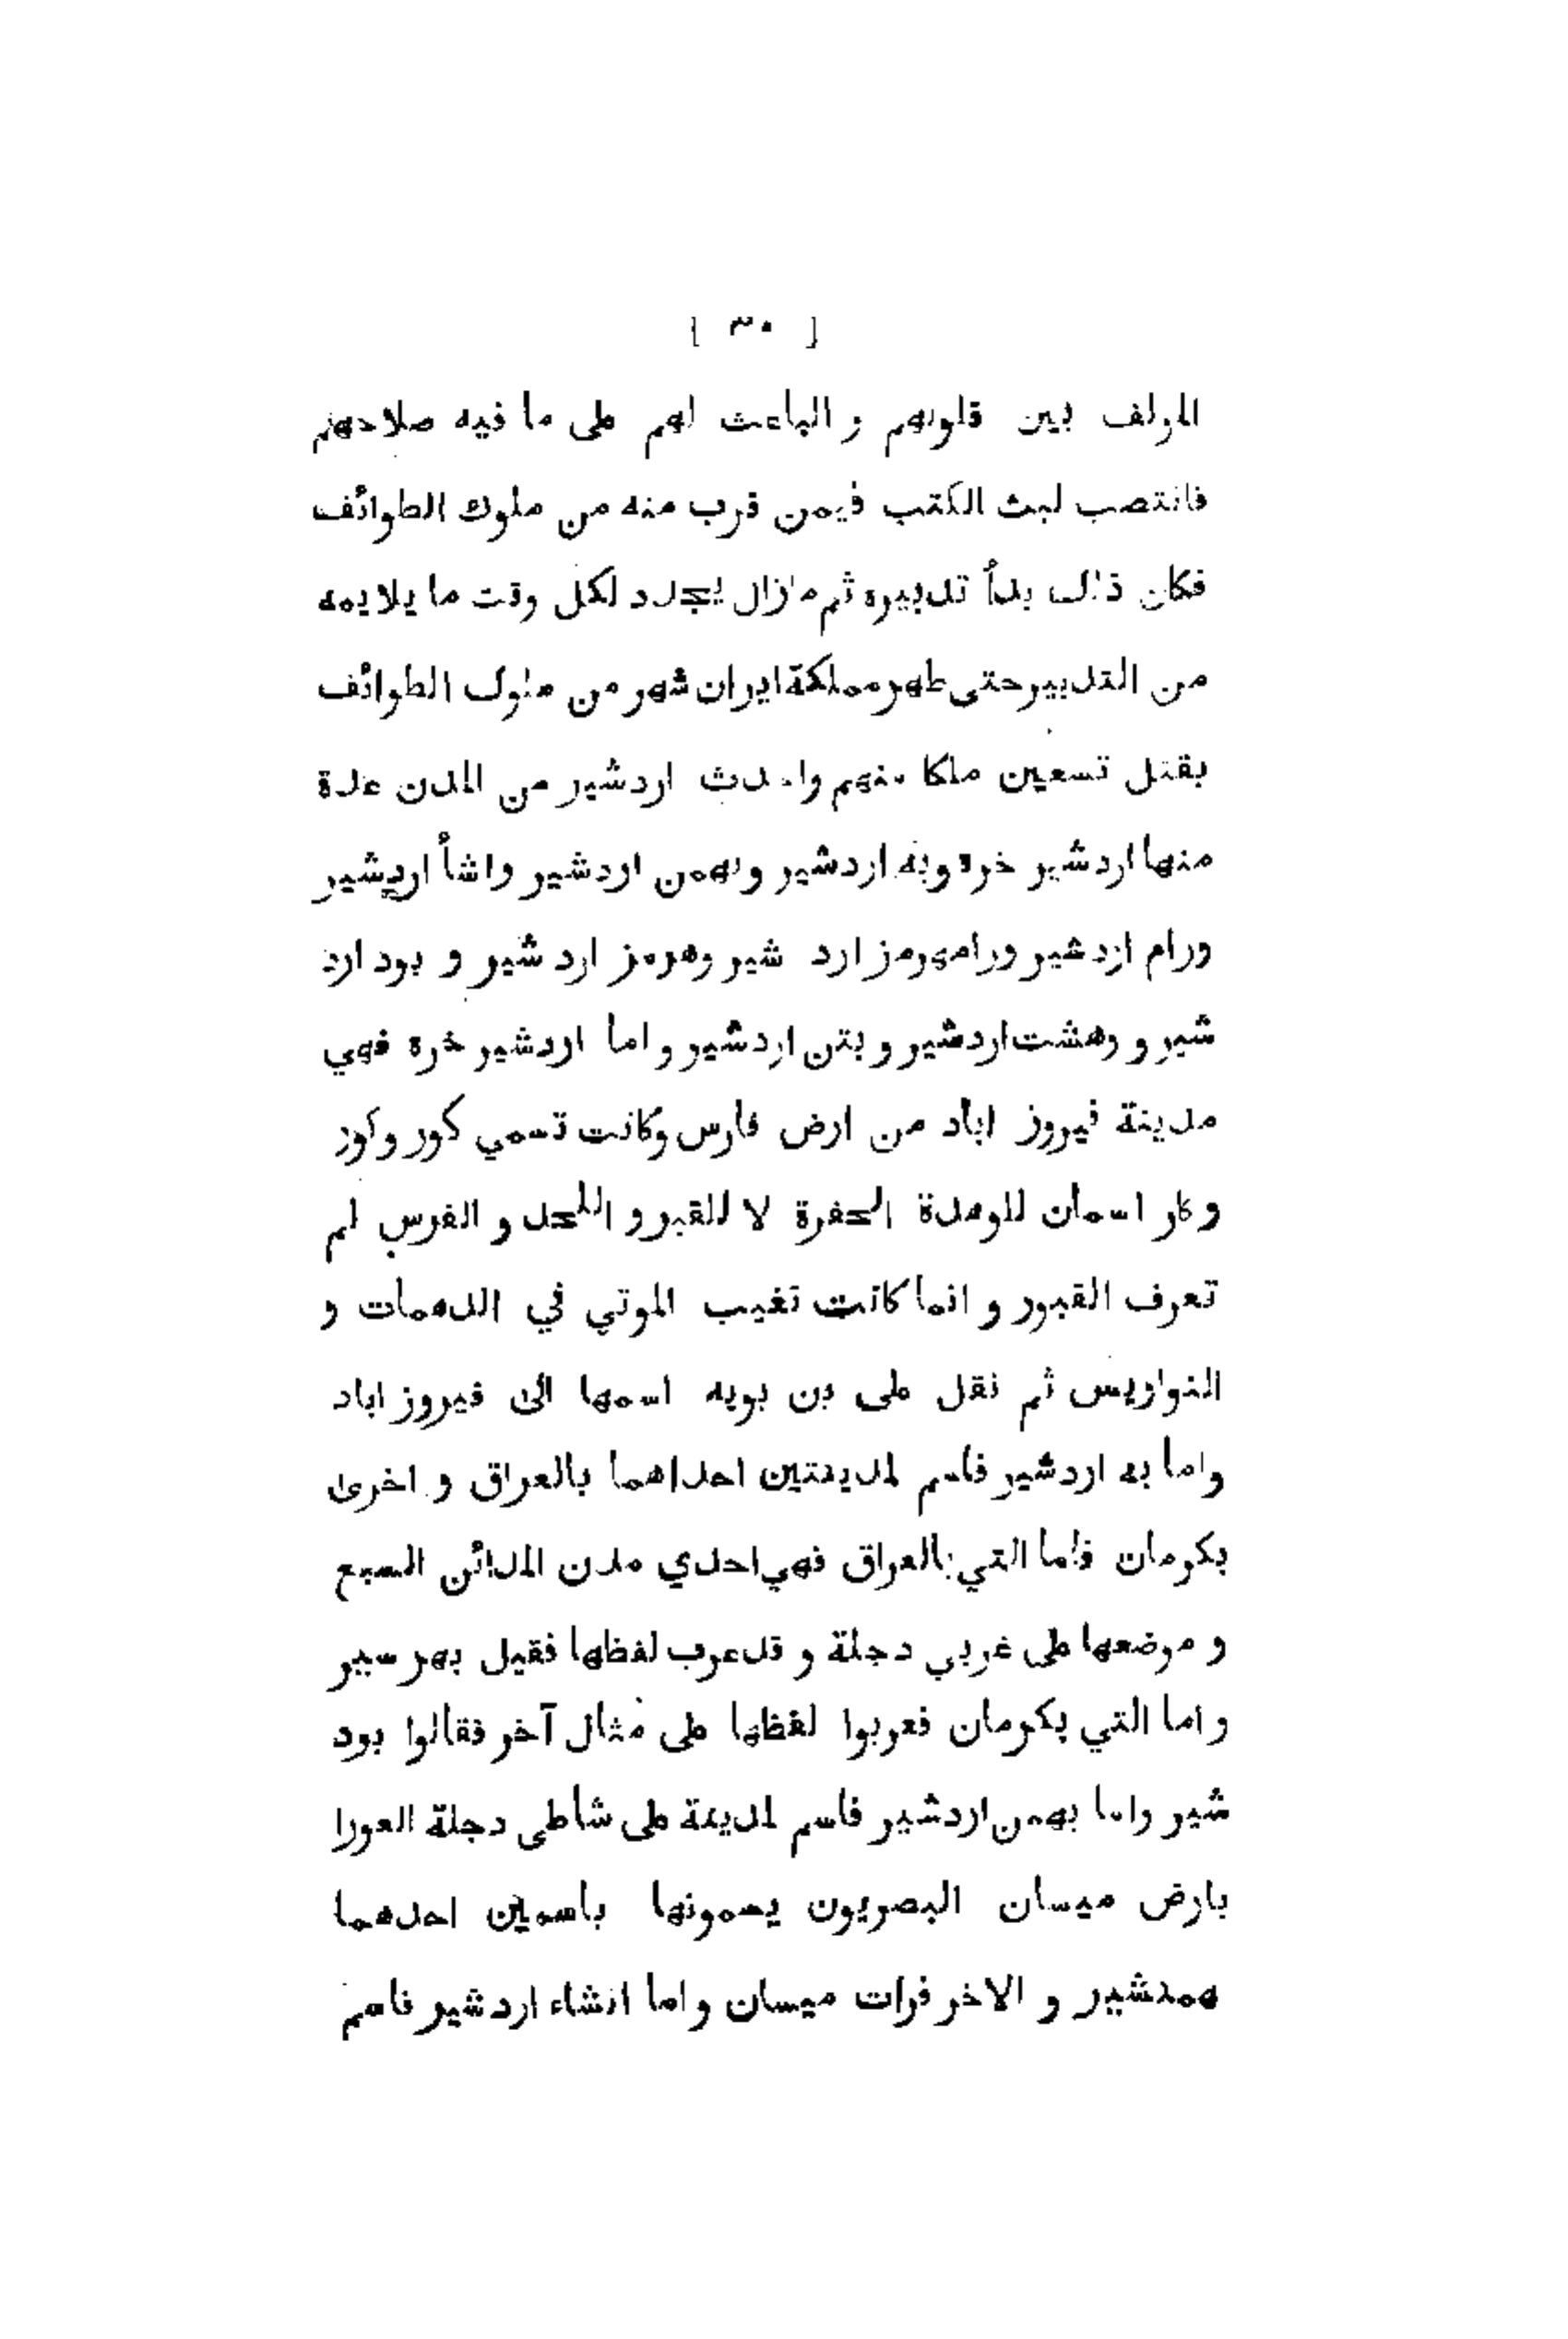 [ ٣٠ ]
المولف بين قلوبهم و الباعث لهم على ما فيه صلاحهم
فانتصب لبث الكتب فيمن قرب منه من ملوك الطوائف
فكان ذلك بدأ تدبيره ثم مازال يجدد لكل وقت ما يلايمه
من التدبير حتى طهر مملكة ايران شهر من ملوك الطوائف
بقتل تسعين ملكا منهم واحدث اردشير من المدن عدة
منها اردشير خرة وبه اردشير وبهمن اردشير واشأ اردشير
ورام اردشير ورامهرمز ارد شير وهرمز ارد شير و بود ارد
شير و وهشت اردشير و بتن اردشير و اما اردشير خرة فهي
مدينة فيروز اباد من ارض فارس وكانت تسمي كور وكور
و كار اسمان للوهدة الحفرة لا للقبر و اللحد و الفرس لم
تعرف القبور و انما كانت تغيب الموتي في الدهمات و
النواريس ثم نقل على بن بويه اسمها الى فيروز اباد
واما به اردشير فاسم لمدينتين احداهما بالعراق و اخرى
بكرمان فاما التي بالعراق فهي احدي مدن المدائن السبع
و موضعها على غربي دجلة و قد عرب لفظها فقيل بهر سير
و اما التي بكرمان فعربوا لفظها على مثال آخر فقالوا بود
شير واما بهمن اردشير فاسم لمدينة على شاطى دجلة العورا
بارض ميسان البصريون يسمونها باسمين احدهما
همدشير و الاخر فرات ميسان و اما انشاء ارد شير فاسم